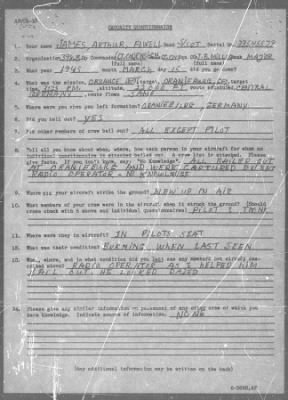 CASUALTY QUESTIONNAIRE
1. Your name JAMES, ARTHUR, ELWELL Rank Serial No.
2. Organization Gp Commander Rank MAJOR
(full name) (full name)
3. What year 1945 month MARCH day 15 did you go down?
4. What was the mission, ORDNANCE DEPOT, ORANIENBURG, target, target
time, altitude, route scheduled, CENTRAL
GERMANY, route flown SAME
5. Where were you when you left formation? ORANIENBURG, GERMANY
6. Did you bail out? YES
7. Did other members of crew bail out? ALL EXCEPT PILOT
8. Tell all you know about when, where, how each person in your aircraft for whom no
individual questionnaire is attached bailed out. A crew list is attached. Please
give facts. If you don't know, say: "No Knowledge". ALL BAILED OUT
AT ORANIENBURG AND WERE CAPTURED EXCEPT
RADIO OPERATOR NO KNOWLEDGE
9. Where did your aircraft strike the ground? BLEW UP IN AIR
10. What members of your crew were in the aircraft when it struck the ground? (Should
cross check with 8 above and individual questionnaires) PILOT
11. Where were they in aircraft? IN PILOTS SEAT
12. What was their condition? BURNING, WHEN LAST SEEN.
13. When, where, and in what condition did you last see any members not already described
above? RADIO OPERATOR AS I HELPED HIM
BAIL OUT HE LOOKED DAZED
14. Please give any similar information on personnel of any other crew of which you
have knowledge. Indicate source of information. NONE
(Any additional information may be written on the back)